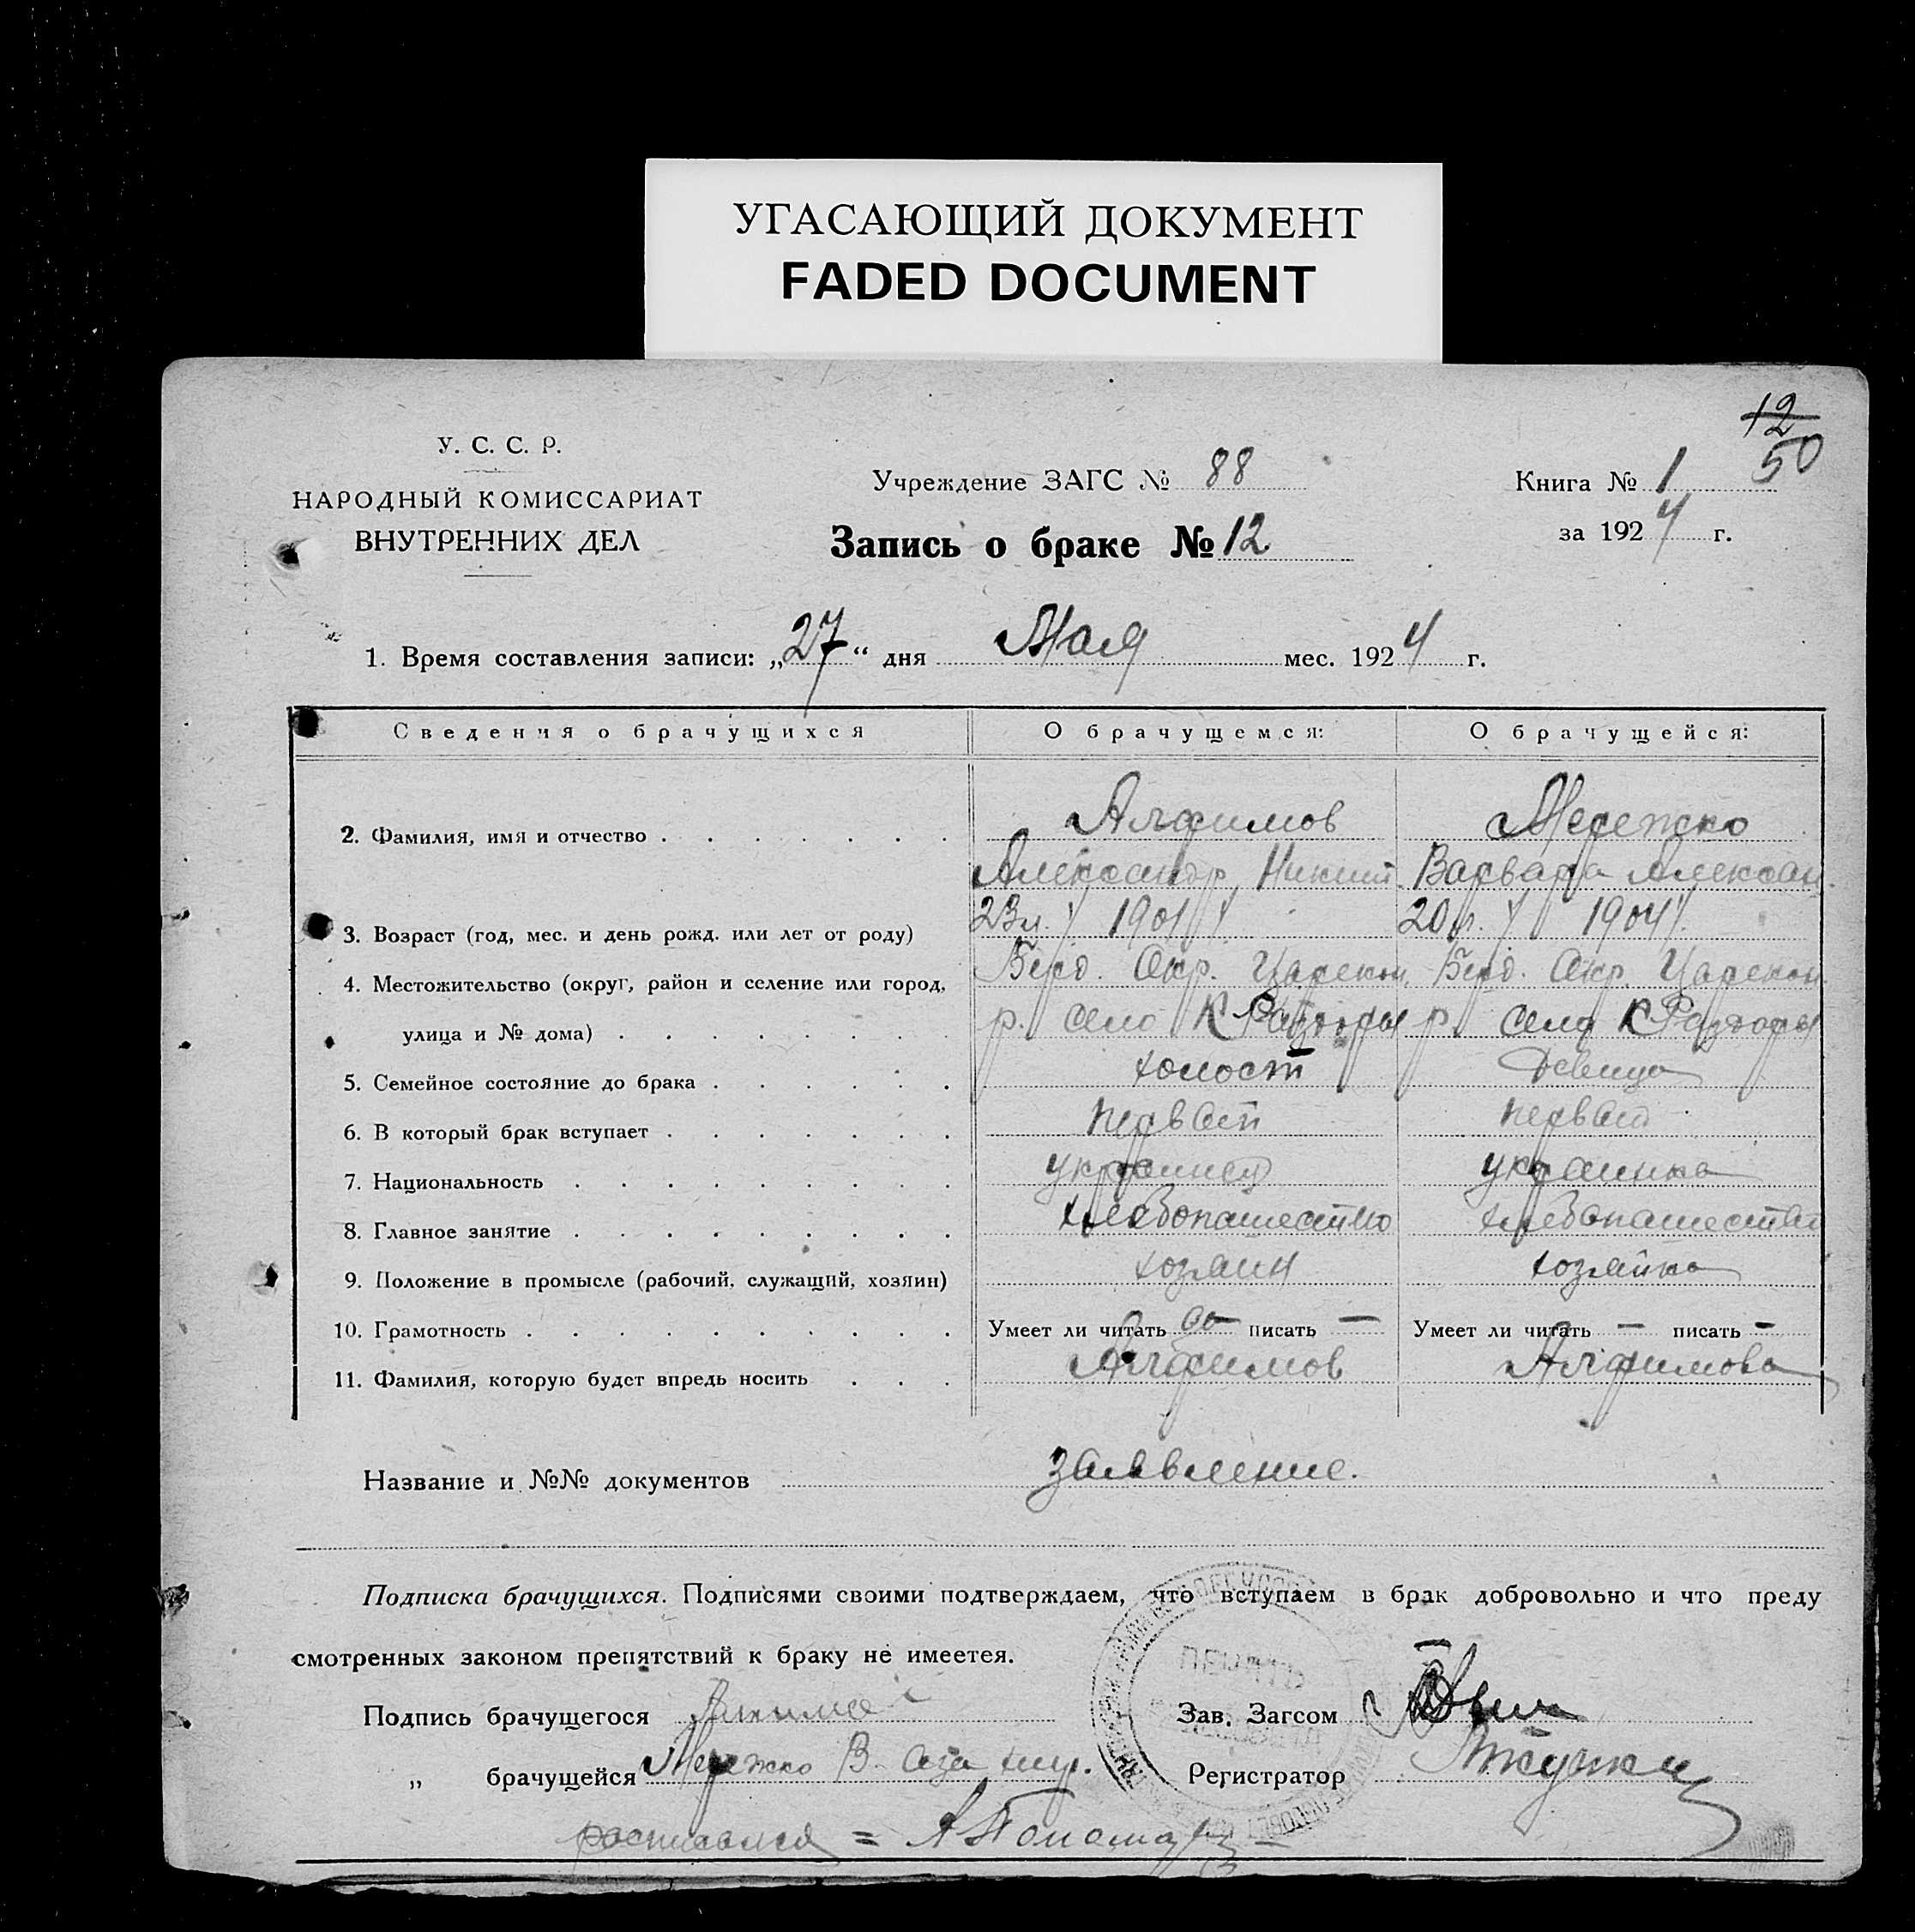 УГАСАЮЩИЙ ДОКУМЕНТ
FADED DOCUMENT
12
50
У. С. С. Р.
НАРОДНЫЙ КОМИССАРИАТ
ВНУТРЕННИХ ДЕЛ
Учреждение ЗАГС № 88
Запись о браке № 12
Книга № 1
за 1924 г.
1. Время составления записи: „27“ дня Мая мес. 1924 г.
Сведения о брачущихся О брачущемся: О брачущейся:
2. Фамилия, имя и отчество Алфимов Мережко
Александр Никит. Варвара Алексан.
3. Возраст (год, мес. и день рожд. или лет от роду) 23 л. 1901 20 л. 1904
4. Местожительство (округ, район и селение или город, Берд. Окр. Царекон. Берд. Окр. Царекон.
улица и № дома) р. село К Раздоры р. село К Раздоры
5. Семейное состояние до брака холост девица
6. В который брак вступает первый первый
7. Национальность украинец украинка
8. Главное занятие хлебопашество хлебопашество
9. Положение в промысле (рабочий, служащий, хозяин) хозяин хозяйка
10. Грамотность Умеет ли читать да писать — Умеет ли читать — писать —
11. Фамилия, которую будет впредь носить Алфимов Алфимова
Название и №№ документов заявление.
Подписка брачущихся. Подписями своими подтверждаем, что вступаем в брак добровольно и что преду
смотренных законом препятствий к браку не имеетея.
Подпись брачущегося Зав. Загсом
„ брачущейся Мережко В. Аза Регистратор
росписался = А Пономар
ПЕЧАТЬ